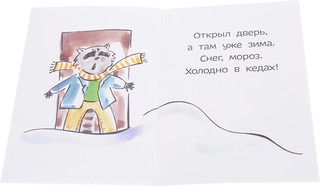 Открыл дверь,
а там уже зима.
Снег, мороз.
Холодно в кедах!